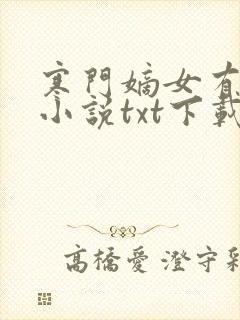 寒門嫡女有
小説txt下載
高橋愛 澄守彩